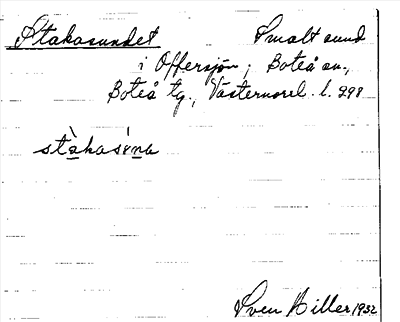 Stakasundet Smalt sund
i Offersjön; Boteå sn.,
Boteå tg., Västernorrl. l. 298
Sven Hiller 1932